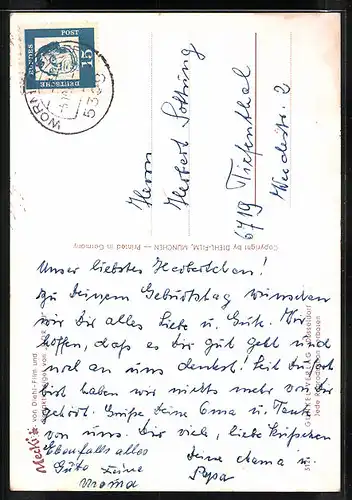 DEUTSCHE
BUNDES
POST
15
WORMS
Herrn
Herbert
6719 Tiefenthal
2
Copyright by DIEHL-FILM, MÜNCHEN — Printed in Germany
Unser liebstes Herbertchen!
Zu Deinem Geburtstag wünschen
wir Dir alles Liebe u. Gute. Wir
hoffen, dass es Dir gut geht und
mal an uns denkst! Seit Du fort
bist haben wir nichts mehr von Dir
gehört. Grüße Deine Oma u. Tante
von uns. Dir viele, liebe Küsschen
Ebenfalls alles Deine Mama u.
Gute Deine Papa
Mecki
von Diehl-Film und
Jede Reproduktion